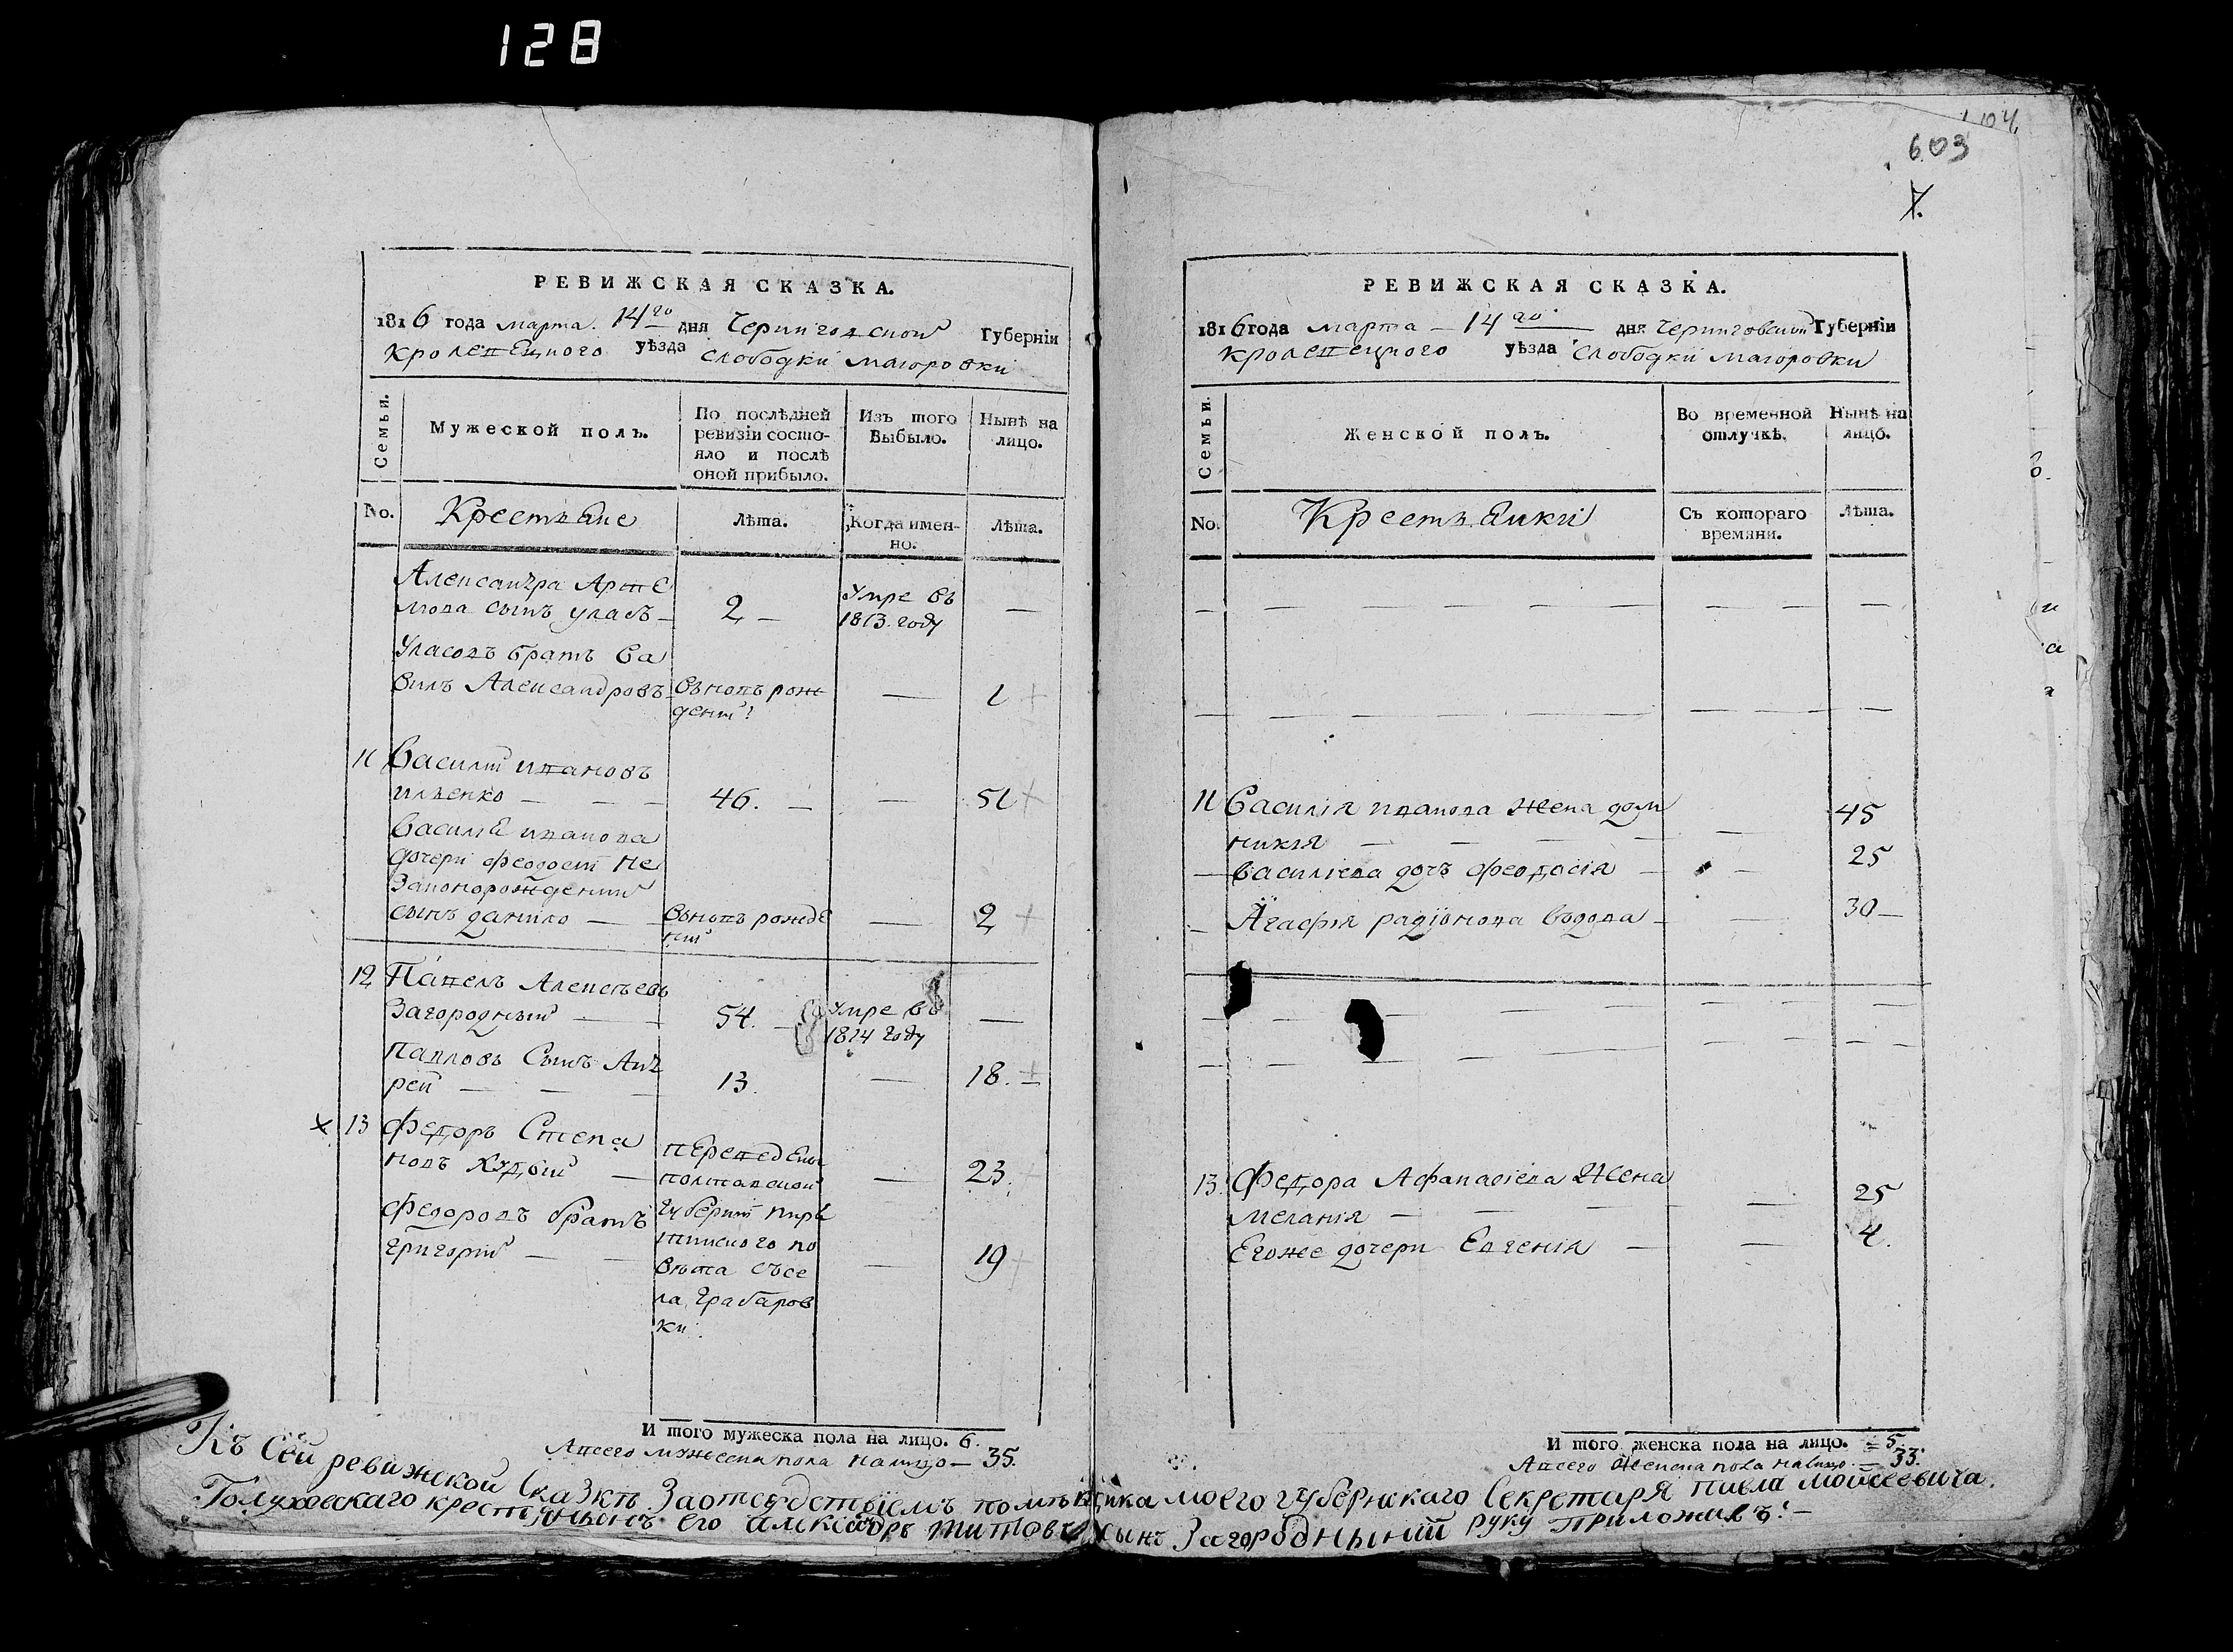 128
РЕВИЖСКАЯ СКАЗКА.
1816 года марта. 14го дня Черниговской Губерніи
Кролевецкого уѣзда Слободки Магоровки
Семьи.
Мужеской полъ.
По послѣдней
ревизіи состо-
яло и послѣ
оной прибыло.
Изъ того
Выбыло.
Нынѣ на
лицо.
No.
Крестьяне
Лѣта.
Когда имен-
но.
Лѣта.
Александра Арте
мова сынъ уласъ — 2 — Умре въ
1813. году —
Уласовъ братъ Ва
вилъ Александровъ вновь рож
деній — 1
11 Василій ивановъ
илченко — — — 46. — — 51
Василія иванова
дочери феодосіи не
законорожденній
сынъ данило — вновь рожде
ній — 2
12 Павелъ Алексѣевъ
Загородный — — 54. — Умре въ
1814 году —
павловъ Сынъ Анд
рей — — — 13. — 18.
13 Федоръ Степа
новъ Худый — переведены
полтавской — 23.
Федоровъ братъ
григорій — — губерніи пиря
тинского по
вѣта съсе
ла Грабаров
ки. — 19
И того мужеска пола на лицо. 6.
Авсего мужеска пола налицо — 35.
104
603
7.
РЕВИЖСКАЯ СКАЗКА.
1816 года марта — 14го дня Черниговской Губерніи
Кролевецкого уѣзда Слободки Магоровки
Семьи.
Женской полъ.
Во временной
отлучкѣ.
Нынѣ на
лицо.
No.
Крестьянки
Съ котораго
времяни.
Лѣта.
11 Василія иванова жена дом
никія — — — — — 45
— василіева дочъ феодосія — — 25
— Агафія радіонова вдова — — 30 —
13. Федора Афанасіева Жена
меланія — — — — — 25
Егоже дочери Евгенія — — 4.
И того женска пола на лицо. = 5.
Авсего женска пола налицо. = 33.
Къ Сей ревижской Сказкѣ Заотсудствіемъ помѣщика моего губернскаго Секретаря павла мойсеевича.
Голуховскаго крестьянинъ его Александръ титовъ Сынъ Загородныній руку приложилъ: —